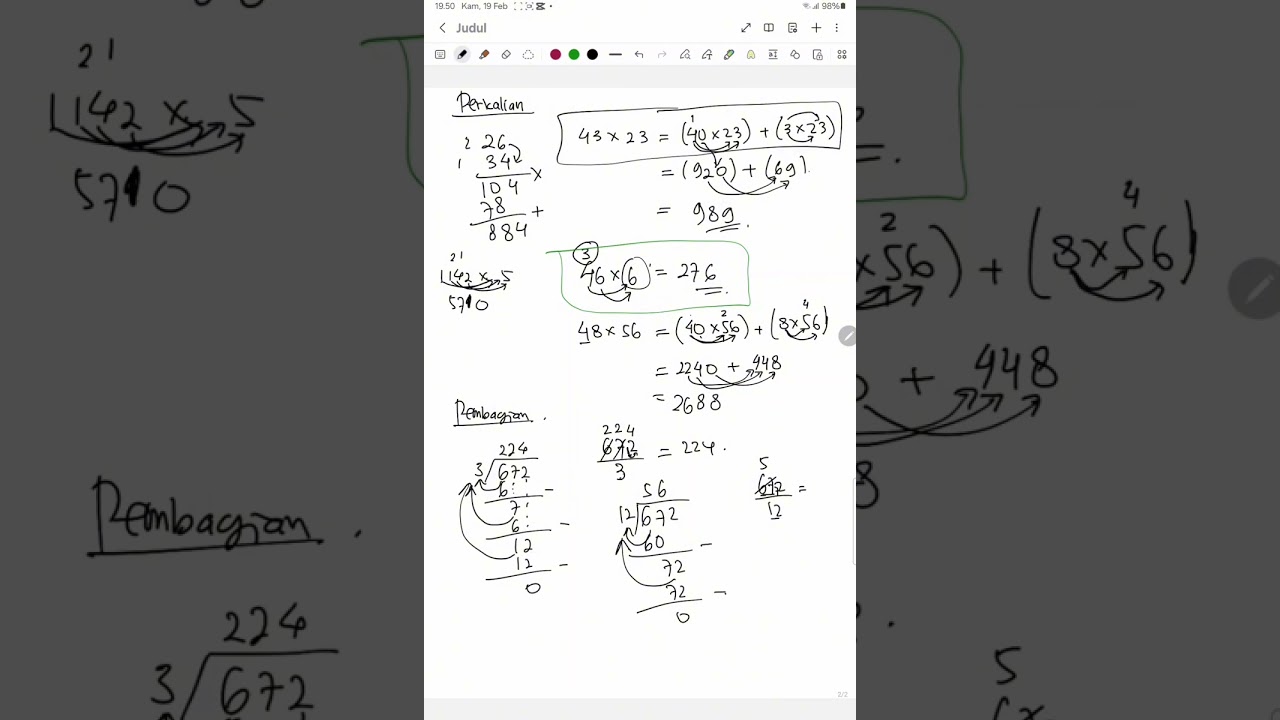 19.50 Kam, 19 Feb 98%
Judul
Perkalian
2 26
1 34 x
104
78 +
884
43 x 23 = (40 x 23) + (3 x 23)
1
= (920) + (69).
= 989.
21
1142 x 5
5710
3
46 x 6 = 276
48 x 56 = (40 x 56) + (8 x 56)
2 4
= 2240 + 448
= 2688
Pembagian.
224
3 672
6 -
7
6 -
12
12 -
0
224
672 = 224.
3
56
12 672
60 -
72
72 -
0
5
672 =
12
2/2